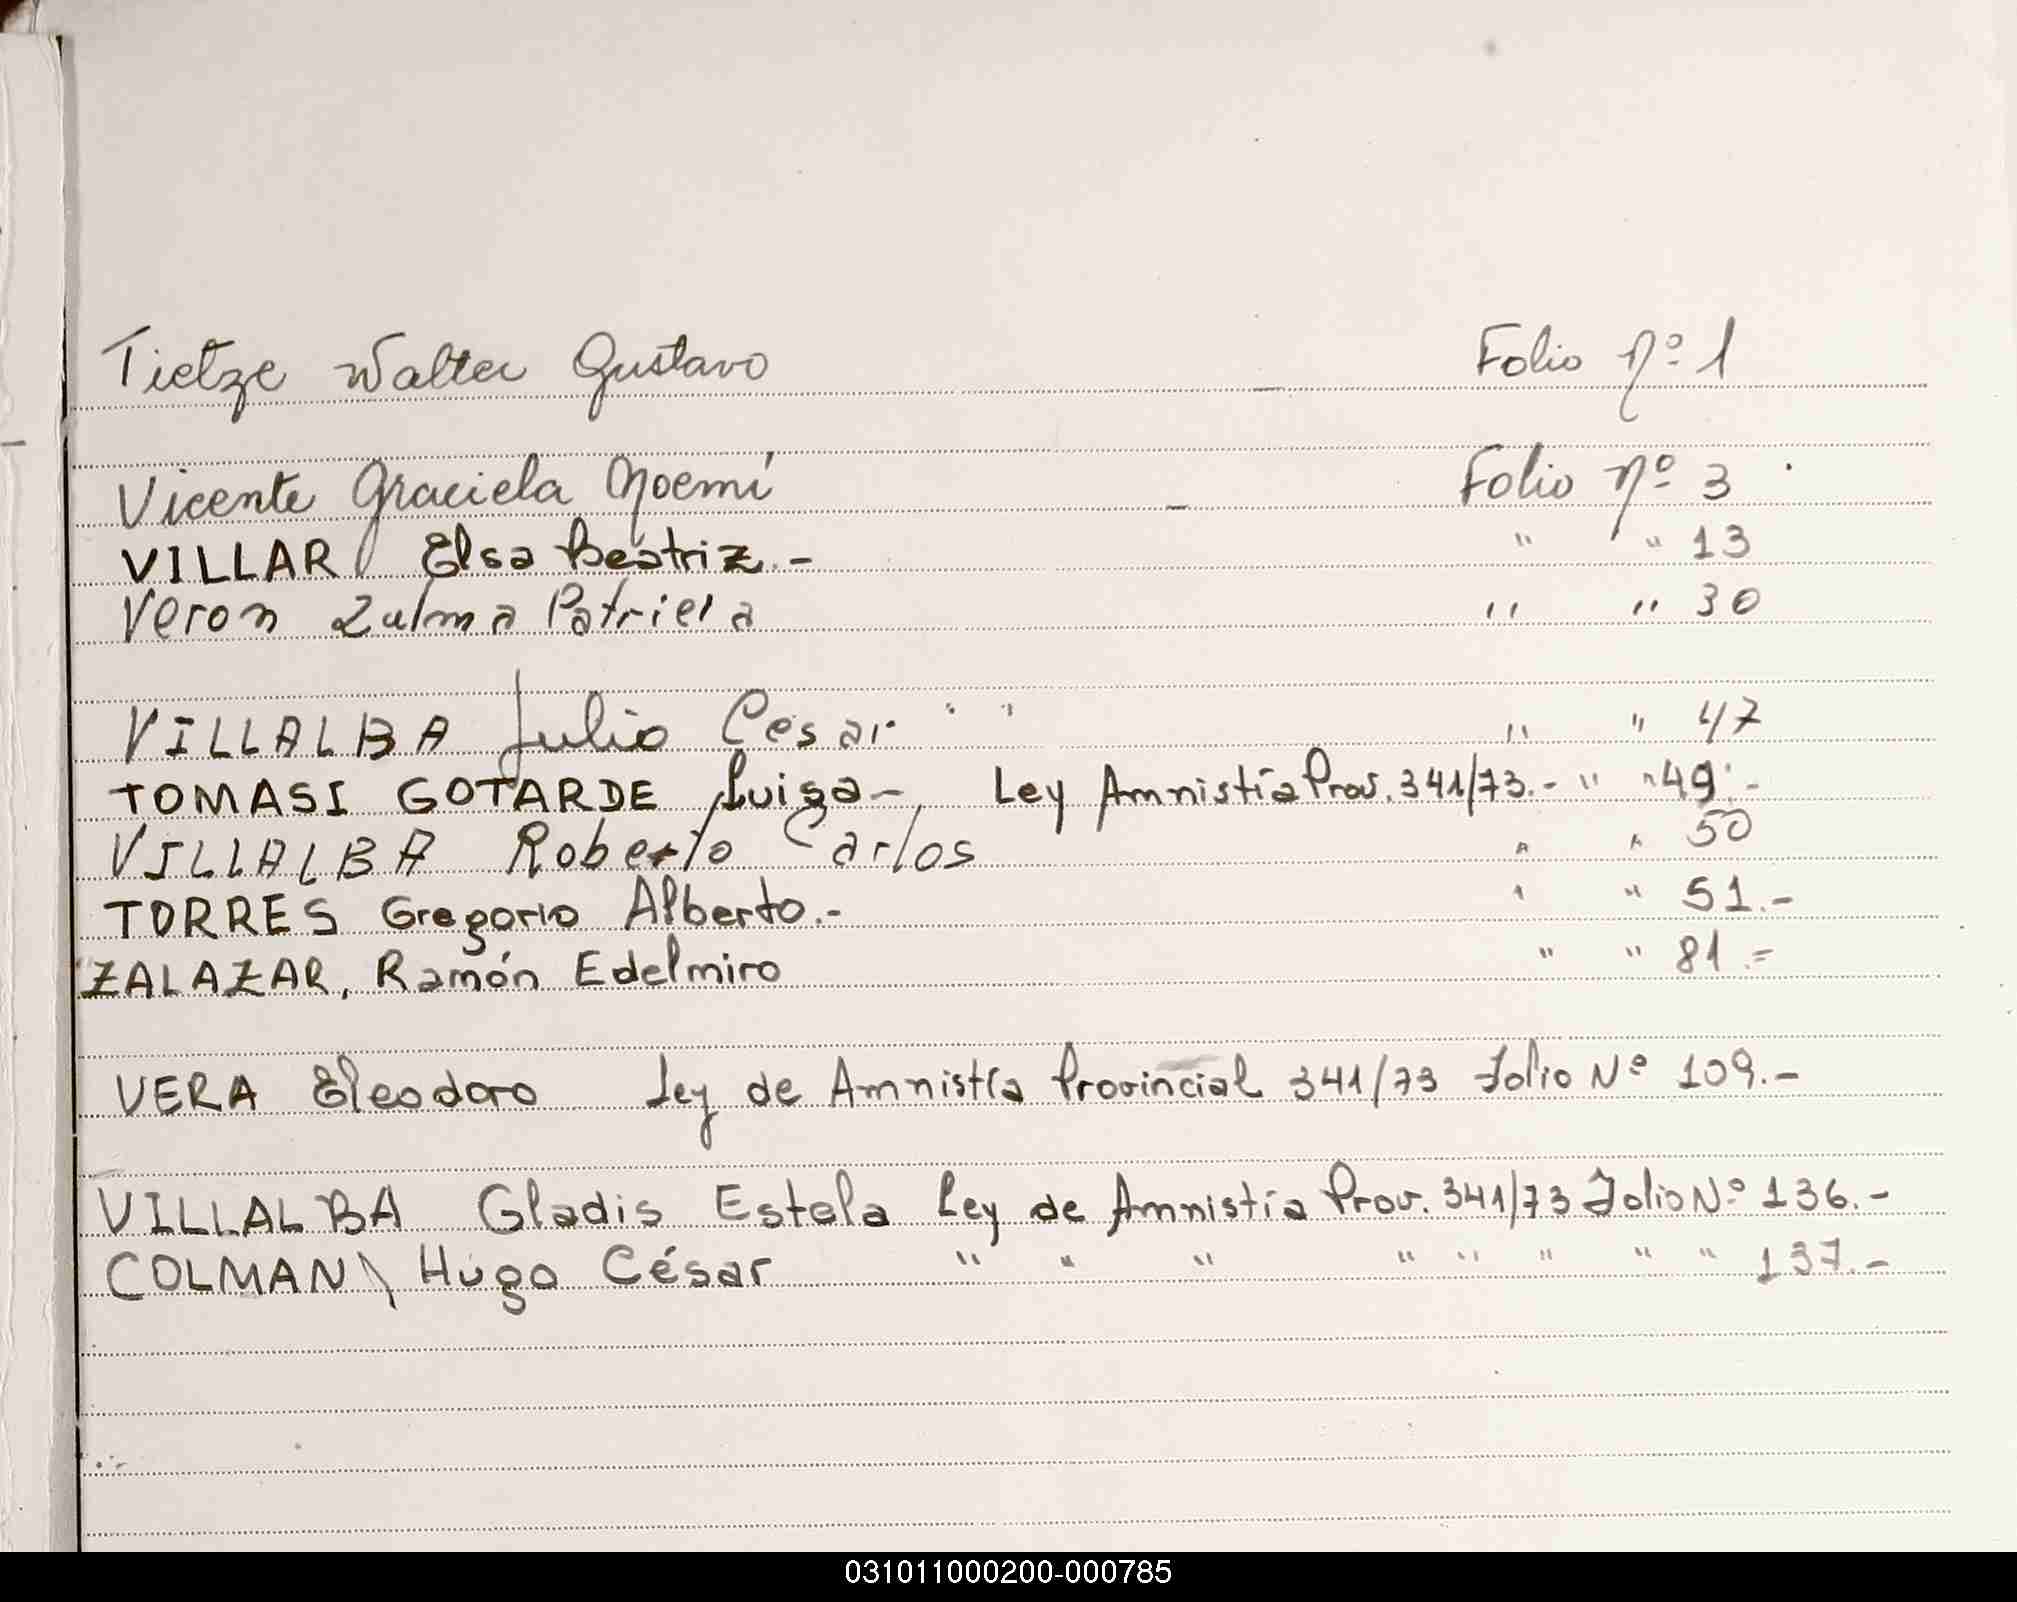 Tietze Walter Gustavo Folio nº 1
Vicente Graciela Noemí Folio nº 3
VILLAR Elsa Beatriz.- " " 13
Veron Zulma Patricia " " 30
VILLALBA Julio Cesar " " 47
TOMASI GOTARDE Luisa - Ley Amnistía Prov. 341/73.- " " 49.-
VILLALBA Roberto Carlos " " 50
TORRES Gregorio Alberto.- " " 51.-
ZALAZAR, Ramón Edelmiro " " 81.=
VERA Eleodoro Ley de Amnistía Provincial 341/73 Folio Nº 109.-
VILLALBA Gladis Estela Ley de Amnistía Prov. 341/73 Folio Nº 136.-
COLMAN Hugo César " " " " " " " " 137.-
031011000200-000785